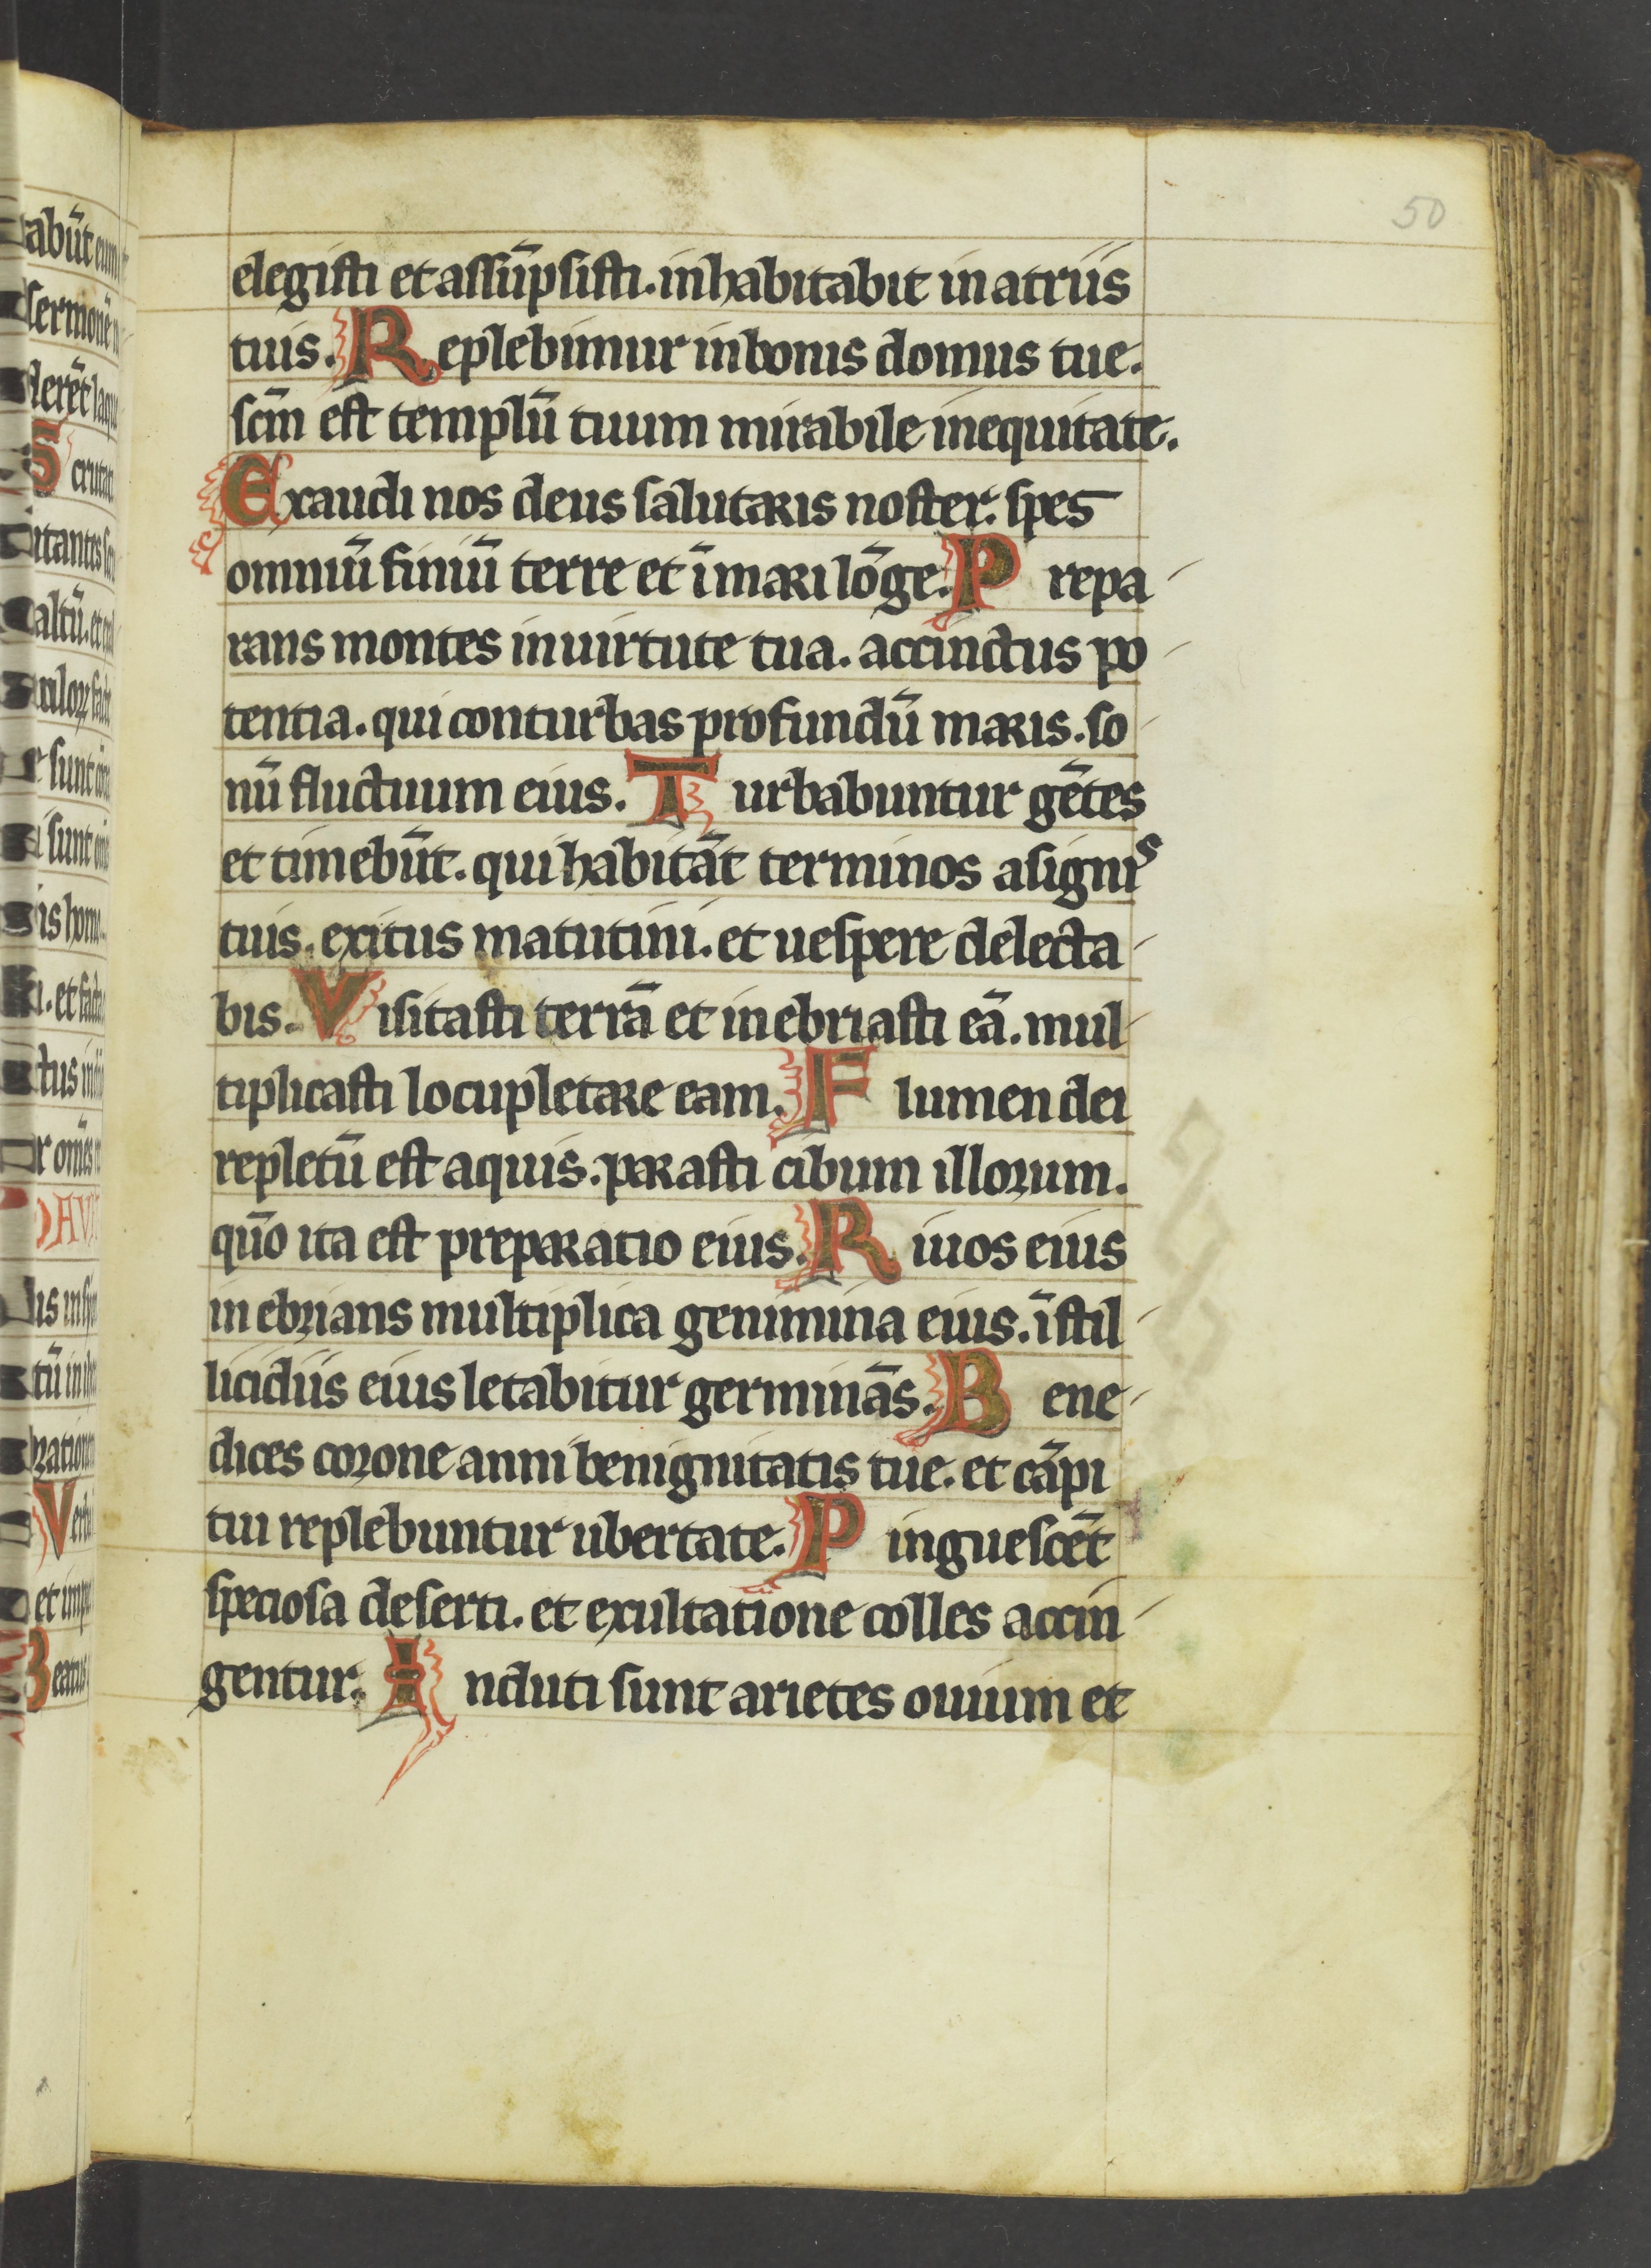 50
elegisti et assūpsisti. inhabitabit in atriis
tuis. Replebimur in bonis domus tue.
scm̄ est templū tuum mirabile in equitate.
Exaudi nos deus salutaris noster. spes
omniū finiū terre et ī mari lōge. Prepa-
rans montes in uirtute tua. accinctus po-
tentia. qui conturbas profundū maris. so-
nū fluctuum eius. Turbabuntur gētes
et timebūt. qui habitāt terminos a signis
tuis. exitus matutini. et uespere delecta-
bis. Visitasti terrā et inebriasti eā. mul-
tiplicasti locupletare eam. Flumen dei
repletū est aquis. parasti cibum illorum.
qūo ita est preparatio eius. Riuos eius
inebrians multiplica genimina eius. ī stil-
licidiis eius letabitur germinās. Bene-
dices corone anni benignitatis tue. et cāpi
tui replebuntur ubertate. Pinguescēt
speciosa deserti. et exultatione colles accin-
gentur. Induti sunt arietes ouium et